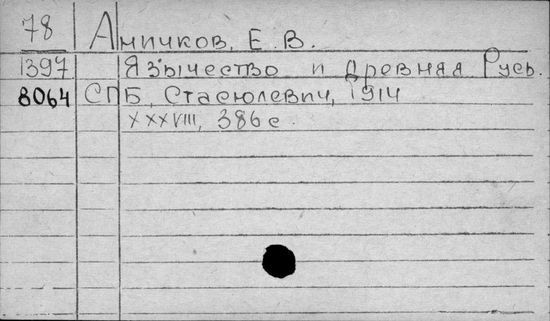 78 Аничков, Е. В.
1397 Язычество и древняя Русь.
8064 СПБ, Стасюлевич, 1914
XXXVIII, 386 с.